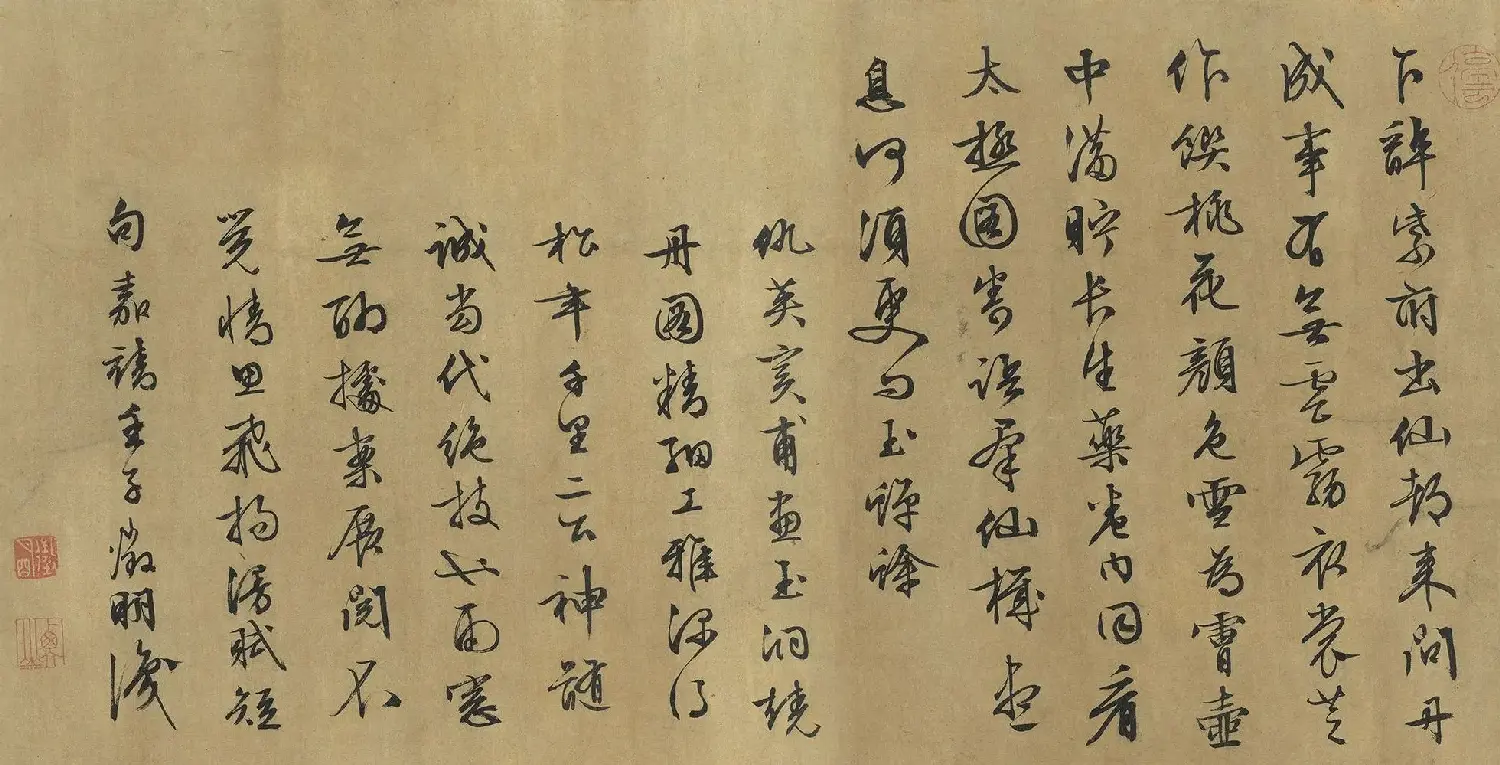 乍辭紫府出仙都來問丹
成事有無雲霧衣裳芝
作饌桃花顏色雪為膚壺
中滿貯長生藥卷內同看
太極圖寄語群仙機盡
息何須更問玉蟾蜍
仇英實甫畫玉洞燒
丹圖精細工雅深得
松年千里二公神髓
誠當代絕技也雨窗
無聊據案展閱不
覺情思飛揚漫賦短
句嘉靖壬子徵明識